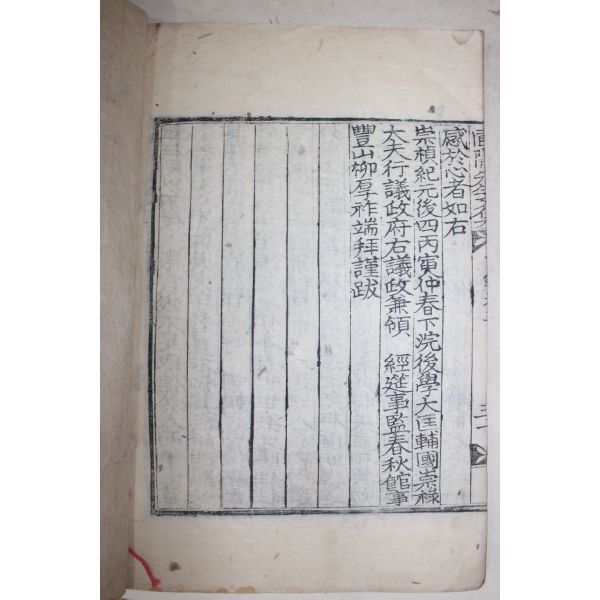 感於心者如右
崇禎紀元後四丙寅仲春下浣後學大匡輔國崇祿
大夫行議政府右議政兼領　經筵事監春秋館事
豐山柳厚祚端拜謹跋